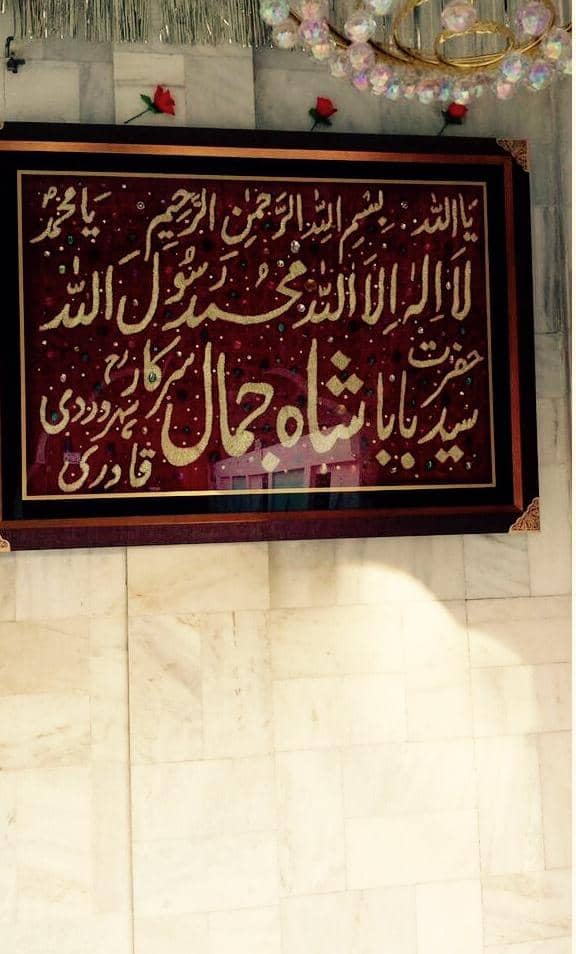 یا اللہ بِسْمِ اللہِ الرَّحْمٰنِ الرَّحِیْمِ یا محمدؐ
لَا اِلٰہَ اِلَّا اللہُ مُحَمَّدٌ رَّسُوْلُ اللہ
حضرت سید بابا شاہ جمال سرکار رحؒ سہروردی
قادری